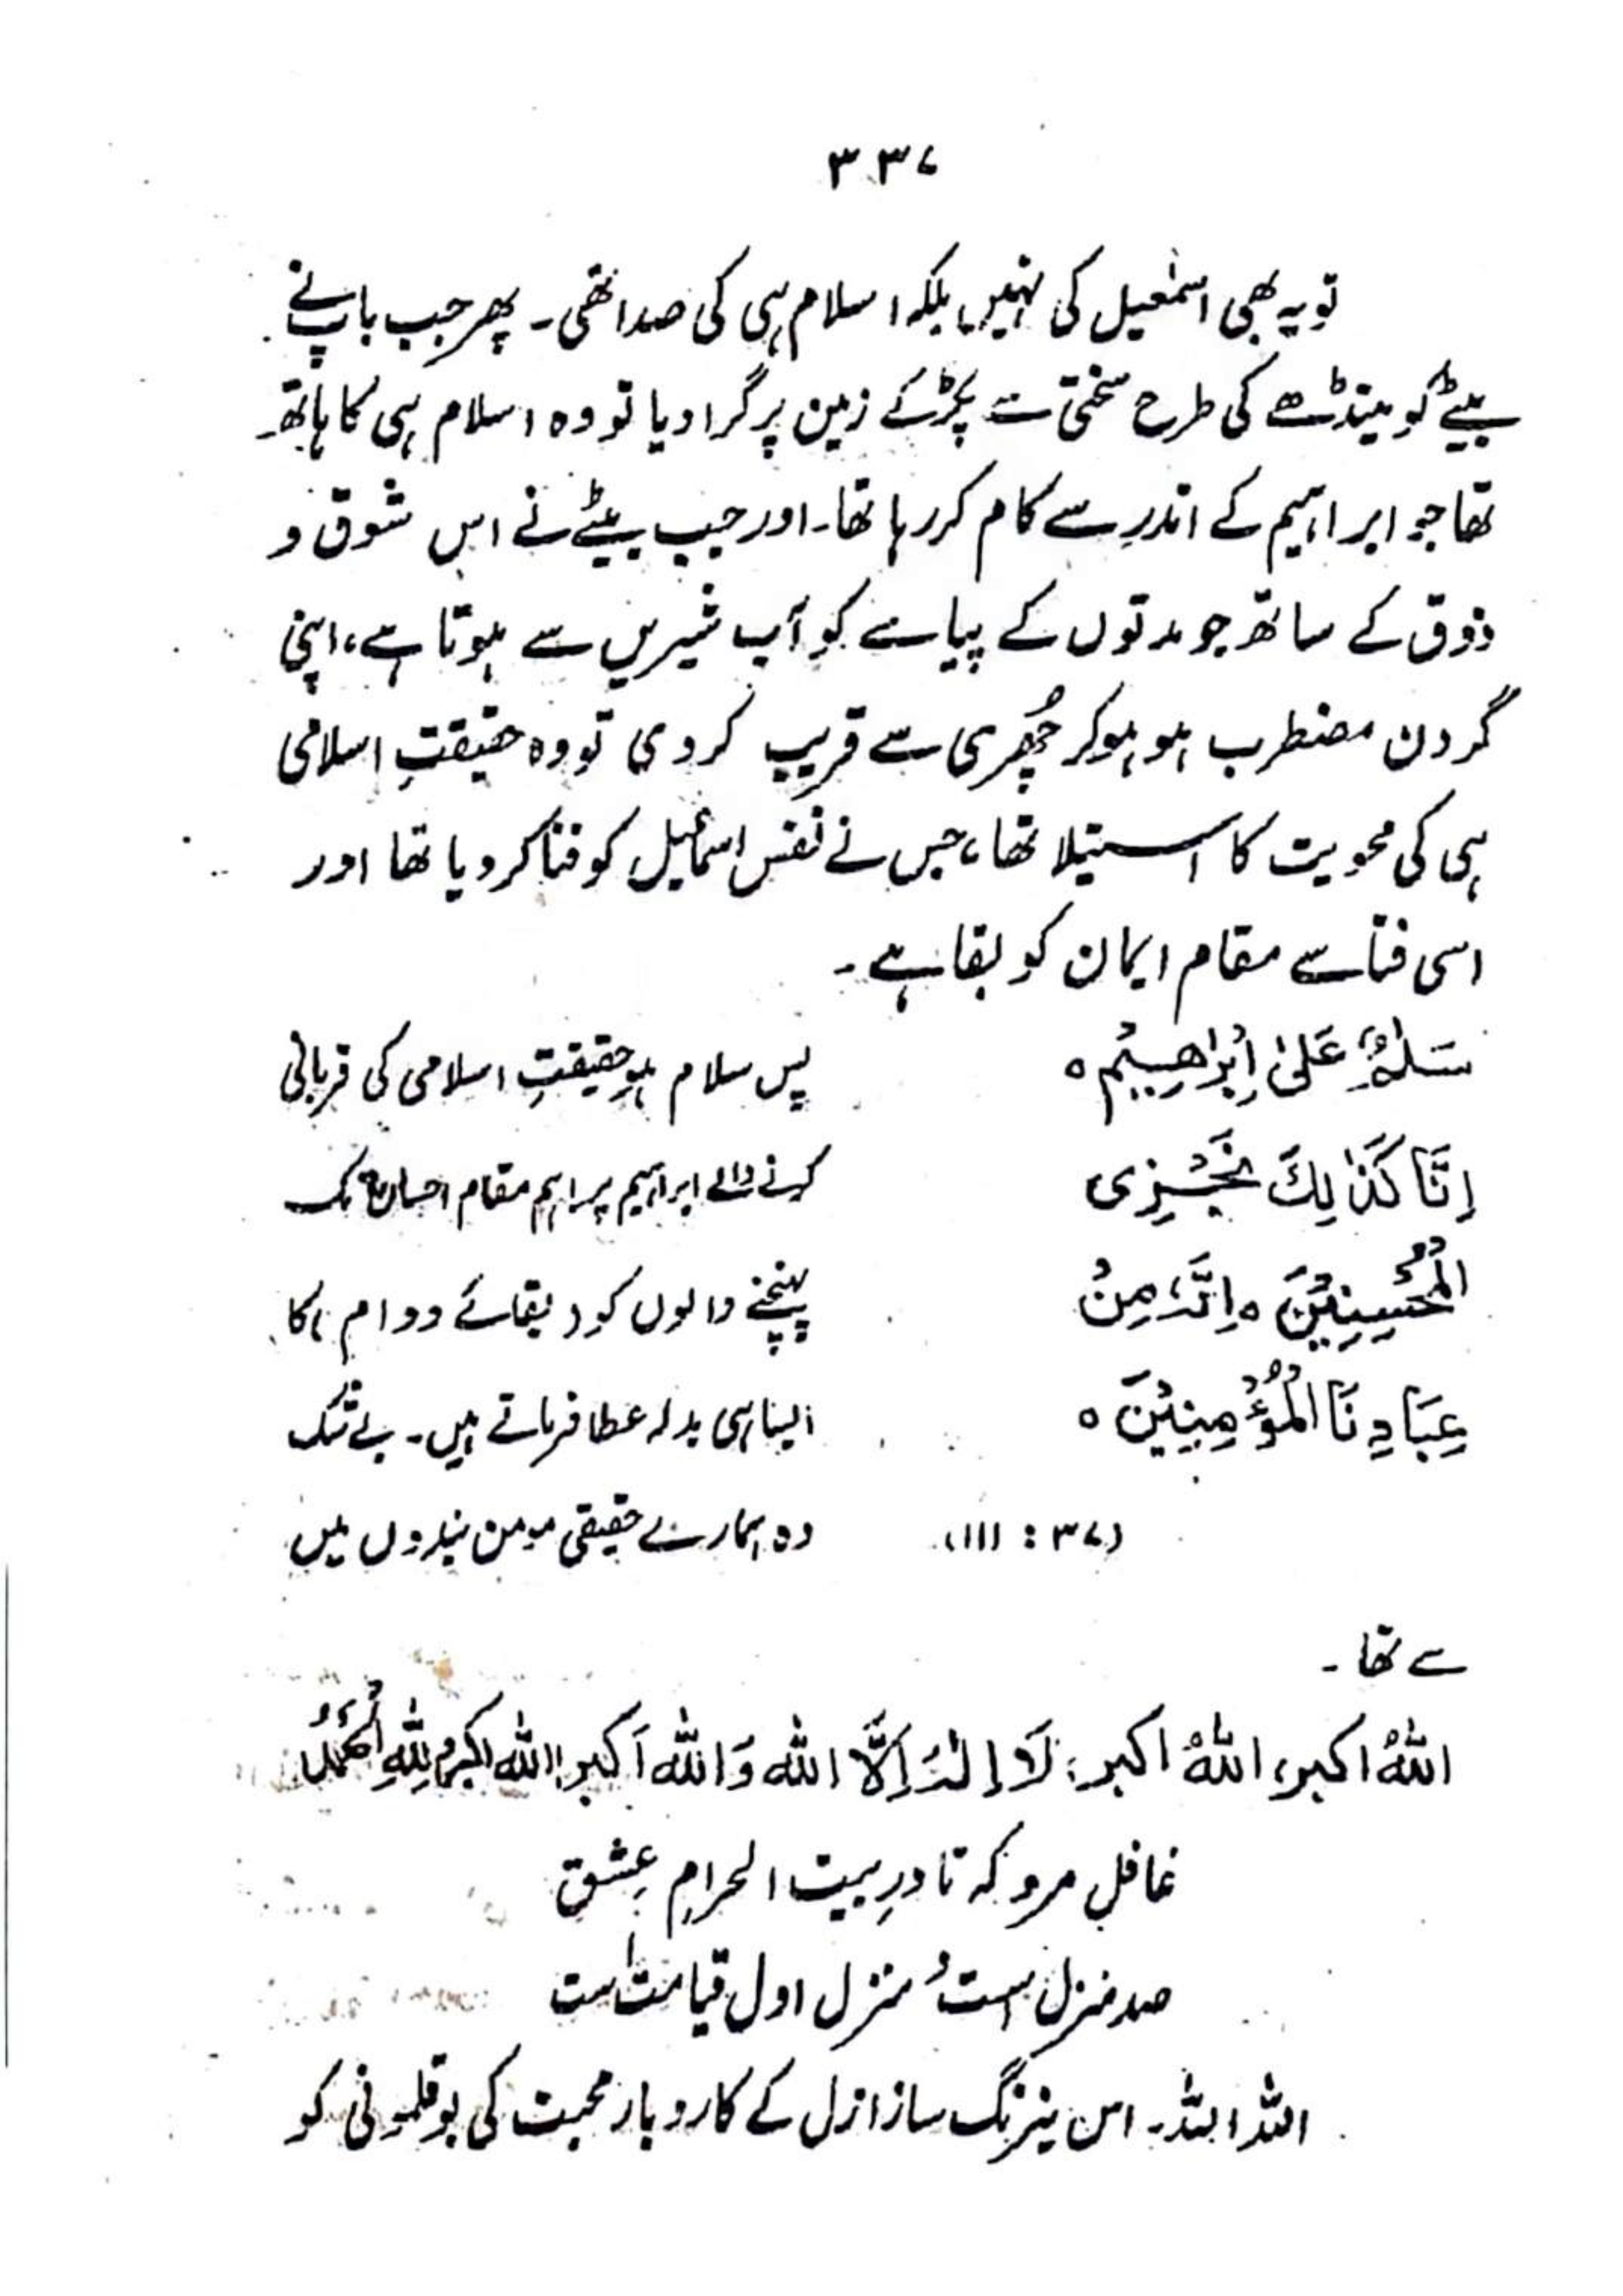 ۳۳۷
تو یہ بھی اسمٰعیل کی نہیں بلکہ اسلام ہی کی صدا تھی۔ پھر جب باپ نے
بیٹے کو مینڈھے کی طرح سختی سے پکڑ کے زمین پر گرا دیا تو وہ اسلام ہی کا ہاتھ
تھا جو ابراہیم کے اندر سے کام کر رہا تھا۔ اور جب بیٹے نے اس شوق و
ذوق کے ساتھ جو مدتوں کے پیاسے کو آب شیریں سے ہوتا ہے، اپنی
گردن مضطرب ہو ہو کر چُھری سے قریب کر دی تو وہ حقیقتِ اسلامی
ہی کی محویت کا استیلا تھا، جس نے نفس اسماعیل کو فنا کر دیا تھا اور
اسی فنا سے مقام ایمان کو بقا ہے۔
سَلٰمٌ عَلٰی اِبْرَاھِیْم ٥ پس سلام ہو حقیقتِ اسلامی کی قربانی
اِنَّا کَذٰلِكَ نَجْزِی کرنے والے ابراہیم پر! ہم مقام احسان تک
الْمُحْسِنِیْنَ ٥ اِنَّهٗ مِنْ پہنچنے والوں کو (بقائے دوام) کا
عِبَادِنَا الْمُؤْمِنِیْنَ ٥ ایسا ہی بدلہ عطا فرماتے ہیں۔ بے شک
(۳۷ : ۱۱۱) وہ ہمارے حقیقی مومن بندوں میں
سے تھا۔
اللهُ اکبر، اللهُ اکبر، لَا اِلٰهَ اِلَّا الله وَالله اَکبر الله اکبر وَلِلّٰهِ الْحَمْدُ
غافل مرو کہ تا درِ بیت الحرامِ عِشق
صد منزل است و منزل اول قیامت است
اللہ اللہ۔ اس نیرنگ ساز ازل کے کاروبار محبت کی بوقلمونی کو